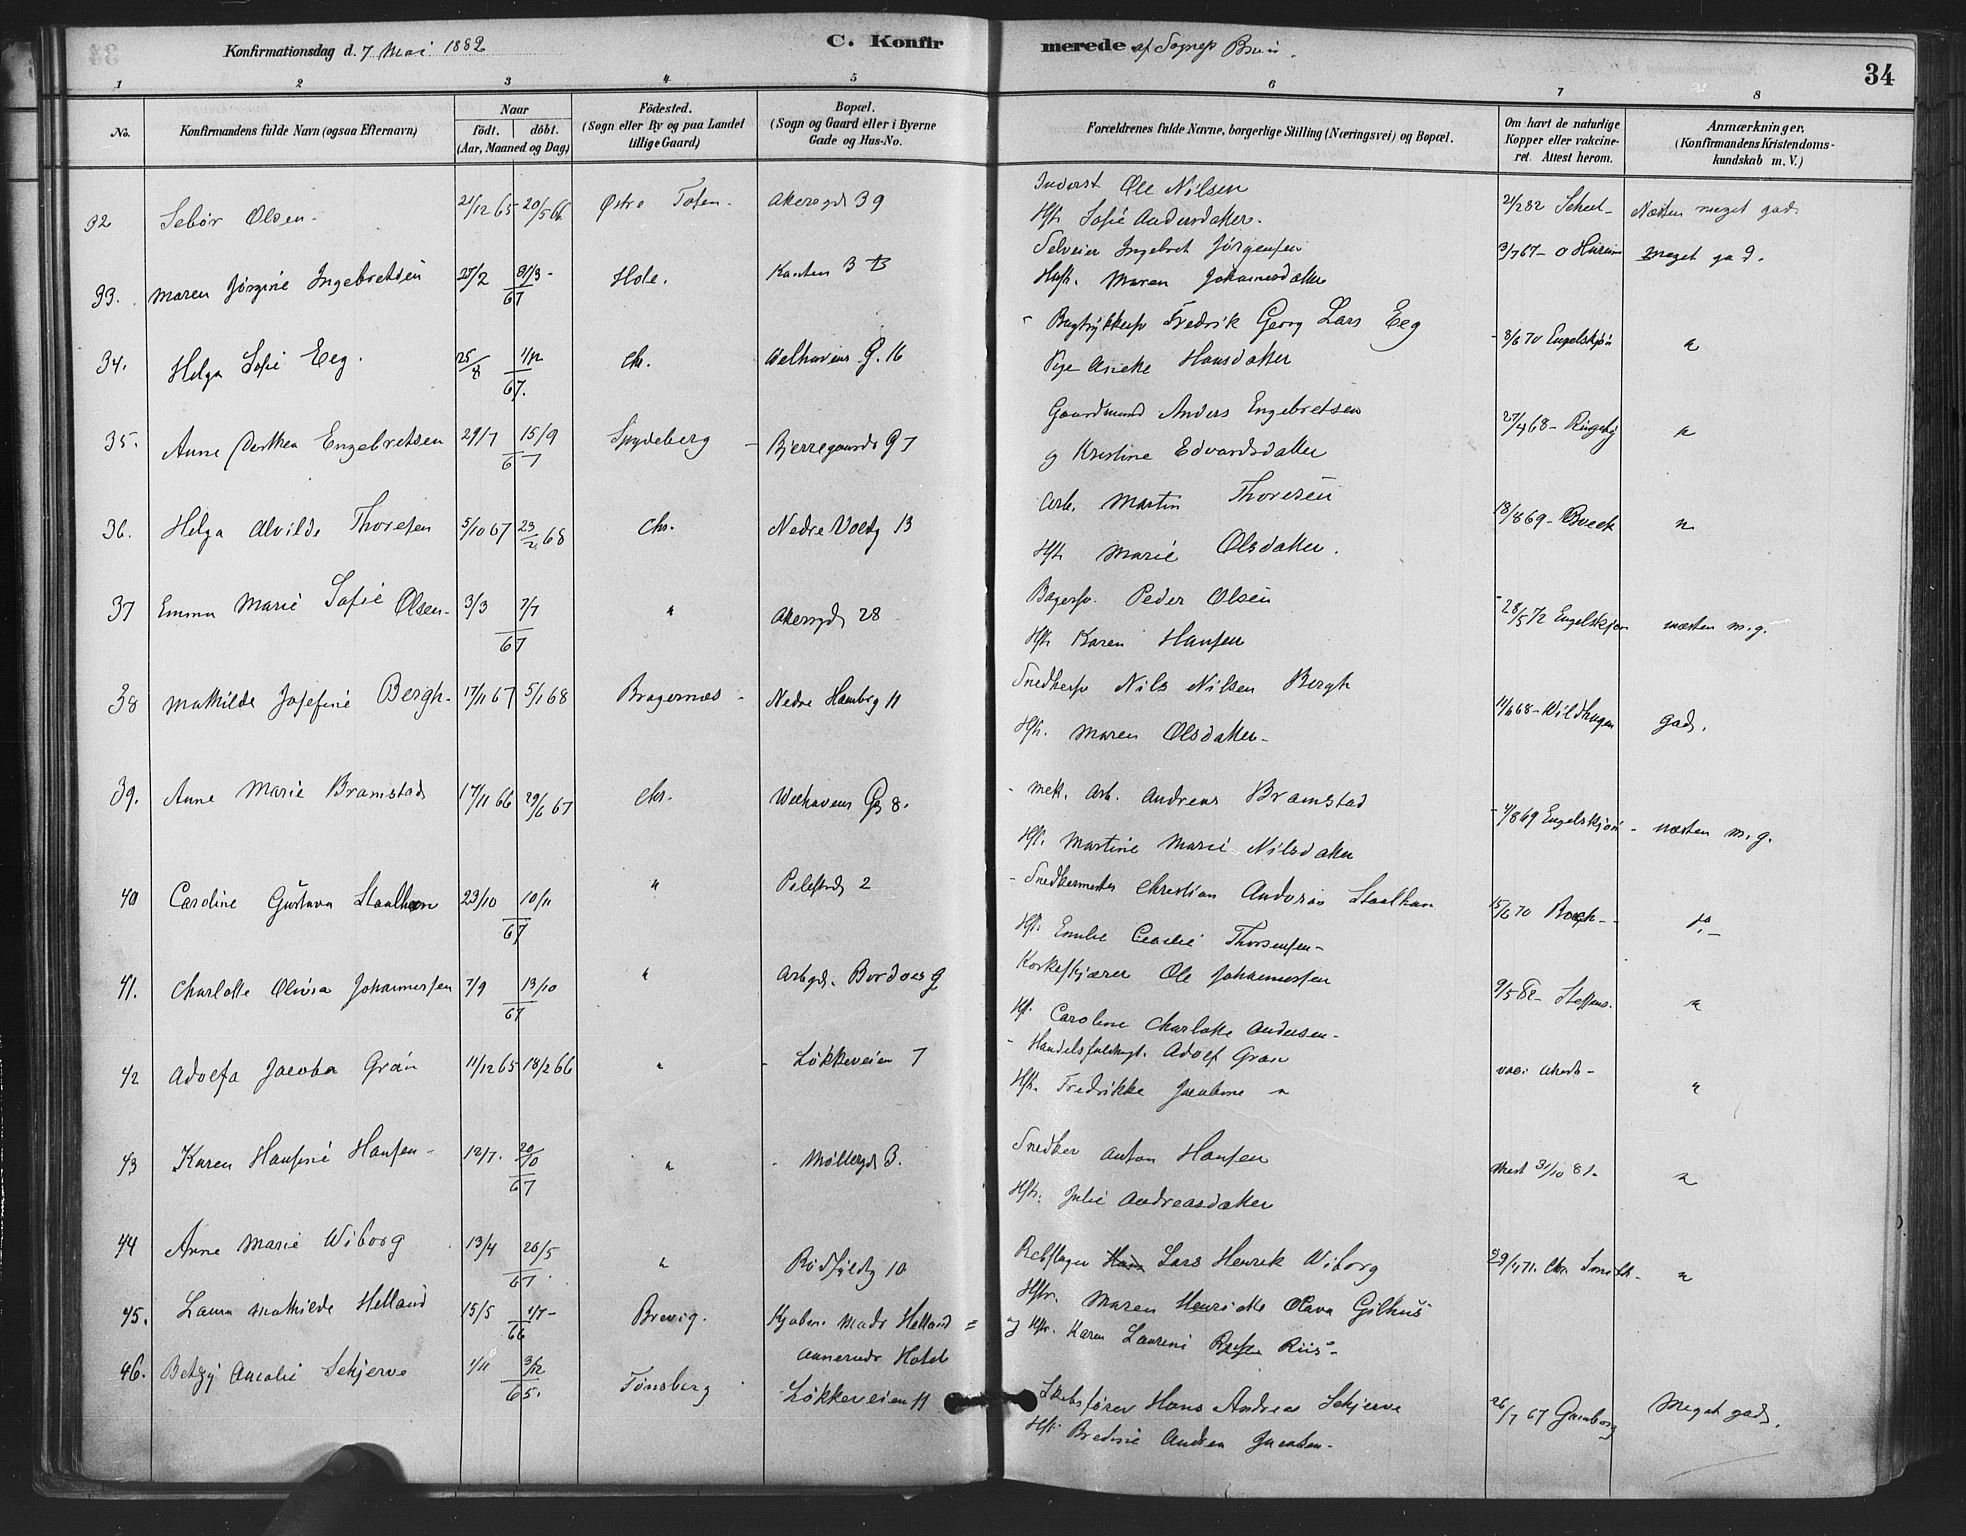 Konfirmationsdag d. 7 Mai 1882
C. Konfir merede af Sognep Bruun.
34
1 2 3 4 5 6 7 8
No.
Konfirmandens fulde Navn (ogsaa Efternavn)
Naar
födt. döbt.
(Aar, Maaned og Dag)
Födested.
(Sogn eller By og paa Landet
tillige Gaard)
Bopæl.
(Sogn og Gaard eller i Byerne
Gade og Hus-No.
Forældrenes fulde Navne, borgerlige Stilling (Næringsvei) og Bopæl.
Om havt de naturlige
Kopper eller vakcine-
ret. Attest herom.
Anmærkninger.
(Konfirmandens Kristendoms-
kundskab m. V.)
32 Olsen. 21/12 65 20/5 66 Østre Toten. Akersgd 39 Inderst Ole Nilsen
Hst. Sofie Andersdatter. 21/2 82 Næsten meget god.
33. Maren Jørgine Ingebretsen 27/2 31/3 67 Hole. Selveier Ingebret Jørgensen
Hst. Maren Johannesdatter 3/7 67 meget god.
34. Helga Sofie Eeg. 25/8 1/12 67. Chr. Welhavens G. 16 Fredrik Georg Lars Eeg
Pige Hansdatter 8/6 70 Engelskjøn "
35. Anne Dorthea Engebretsen 29/7 15/9 67 Spydeberg Bjerregaards G 7 Gaardmand Anders Engebretsen
og Kristine Edvardsdatter 27/4 68 "
36. Helga Alvilde Thoresen 5/10 67 23/2 68 Chr. Nedre Voldg 13 Arb. Martin Thoresen
Hst. Marie Olsdatter. 18/8 69 "
37 Emma Marie Sofie Olsen 3/3 7/7 67 " Akersgd 28 Bagersv. Peder Olsen
Hst. Karen Hansen 28/5 72 Engelskjøn næsten m.g.
38 Mathilde Josefine Bergh 17/11 67 5/1 68 Bragernæs Nedre Hambg 11 Snedkersv Nils Nilsen Bergh
Hst. Maren Olsdatter 11/6 68 Wildhagen god.
39. Anne Marie Bramstad 17/11 66 29/6 67 Chr. Welhavens G 8. mek. Arb. Andreas Bramstad
Hst. Martine Marie Nilsdatter 4/8 69 Engelskjøn næsten m.g.
40 Caroline Gustava 23/10 10/11 67 " Pilestrd 2 Snedkermester Christian Andreas
Hst. Emilie Cecilie Thorsensen 15/6 70 do.
41. Charlotte Olivia Johannessen 7/9 13/10 67 " Korkeskjærer Ole Johannessen
Hst. Caroline Charlotte Andersen 9/5 82 Steffens. "
42 Adolfa Jacoba Gran 11/12 65 18/2 66 " Løkkeveien 7 Adolf Gran
Hst. Fredrikke Jacobine " "
43 Karen Hansine Hansen 12/7. 20/10 67 " Møllergd 3. Snedker Anton Hansen
Hst. Julie Andreasdatter 31/10 81 "
44 Anne Marie Wiborg 13/4 26/5 67. " Rødfyldg 10 Rebslager Lars Henrik Wiborg
Hst. Maren Henriette Olava Gilhus 29/1 71. Chr. Smith "
45. Laura Mathilde Helland 15/5 1/7 66 Brevig. Kjøbm. Mads Helland
og Hst. Karen Laurine Riis
46. Betzy Amalie Schjerve 1/11 3/12 65. Tønsberg Hotel
Løkkeveien 11 Skibsfører Hans Andreas Schjerve
Hst. Bredine Andrea Jacobsen 26/7 67 Meget god.